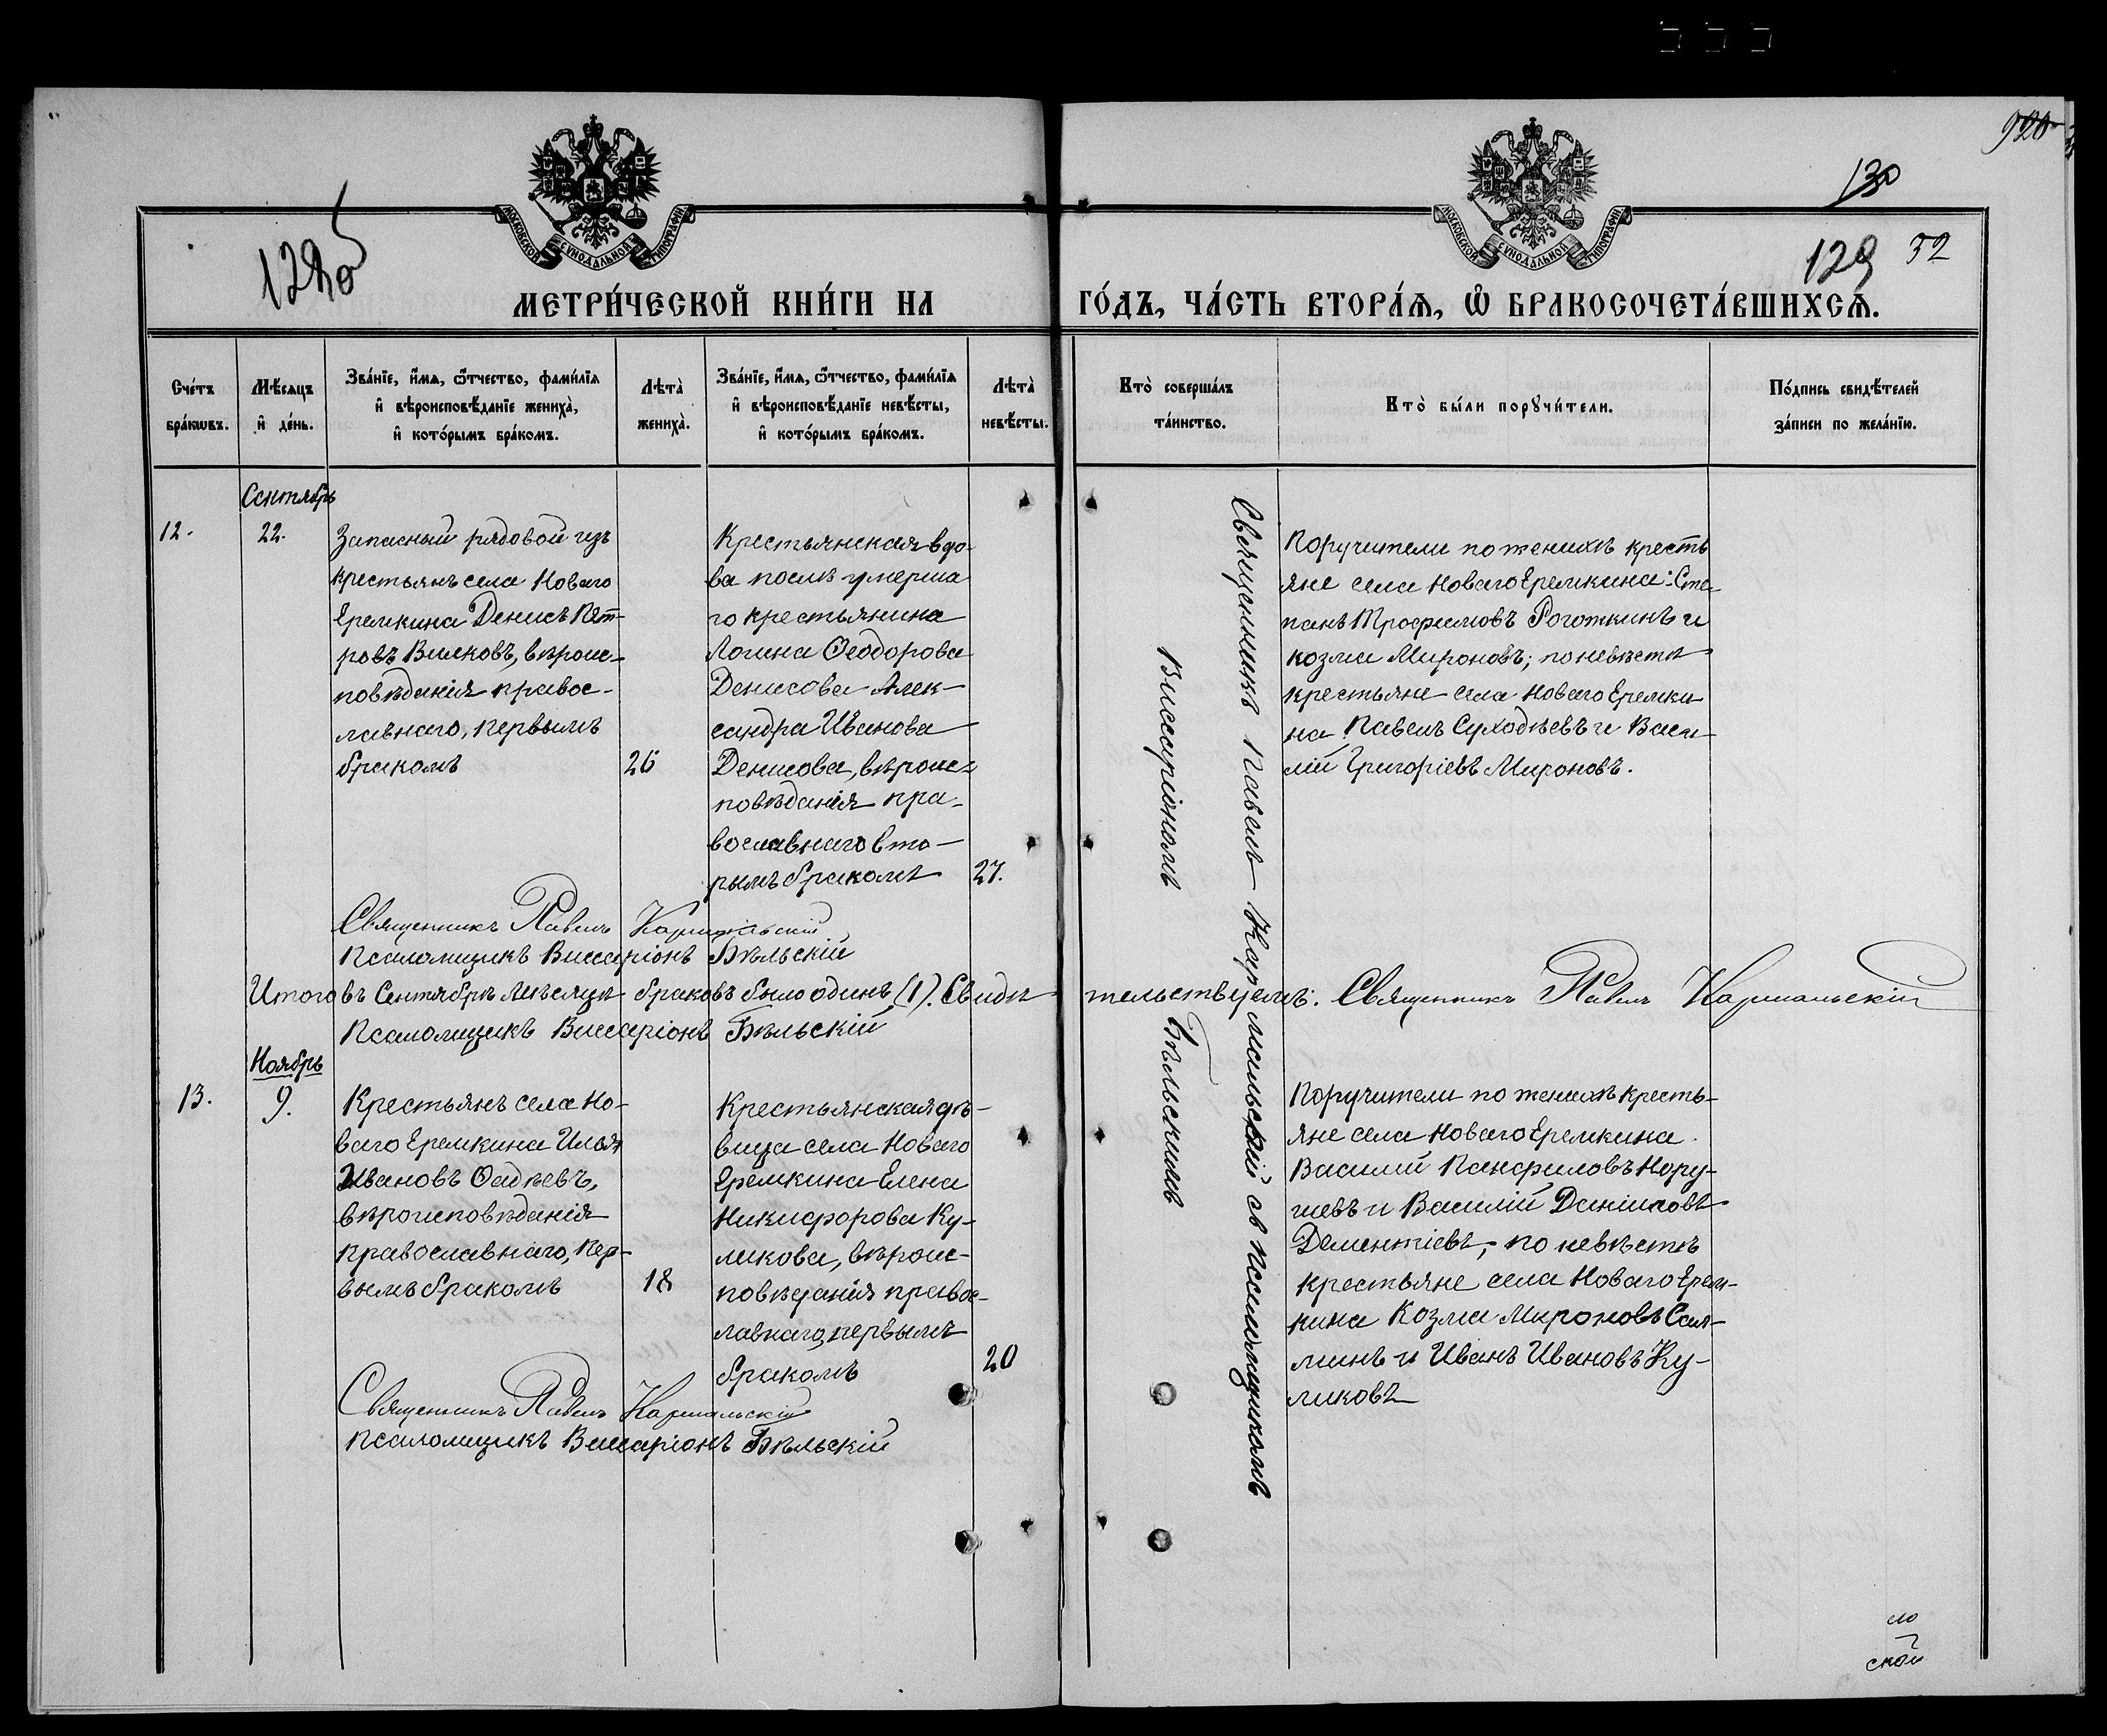 920
130
МОСКОВСКОЙ СѴНОДАЛЬНОЙ ТИПОГРАФІИ
МОСКОВСКОЙ СѴНОДАЛЬНОЙ ТИПОГРАФІИ
129 52
МЕТРИ́ЧЕСКОЙ КНИ́ГИ НА ГО́ДЪ, ЧА́СТЬ ВТОРА́Ѧ, Ѽ БРАКОСОЧЕТА́ВШИХСѦ.
Сче́тъ бра́кωвъ.
Мѣ́сяцъ и҆ де́нь.
Зва́нїе, и҆́мѧ, ѻ҆́тчество, фами́лїѧ
и҆ вѣроисповѣ́данїе жениха̀,
и҆ кото́рымъ бра́комъ.
Лѣта̀ жениха̀.
Зва́нїе, и҆́мѧ, ѻ҆́тчество, фами́лїѧ
и҆ вѣроисповѣ́данїе невѣ́сты,
и҆ кото́рымъ бра́комъ.
Лѣта̀ невѣ́сты.
Кто̀ соверша́лъ та́инство.
Кто̀ бы́ли порꙋчи́тели.
По́дпись свидѣ́телей
за́писи по жела́нїю.
Сентябрь
12.
22.
Запасный рядовой изъ
крестьянъ села Новаго
Еремкина Денисъ Пет-
ровъ Вилковъ, вѣроис-
повѣданія правос-
лавнаго, первымъ
бракомъ
26
Крестьянская вдо-
ва послѣ умерша
го крестьянина
Логина Ѳеодорова
Денисова Алек-
сандра Иванова
Денисова, вѣроис-
повѣданія пра-
вославнаго вто-
рымъ бракомъ
27.
Священникъ Павелъ Кармальскій съ псаломщикомъ
Виссаріономъ Бѣльскимъ
Поручители по женихѣ кресть
яне села Новаго Еремкина: Сте-
панъ Трофимовъ Роготкинъ и
Козма Мироновъ; по невѣстѣ
крестьяне села Новаго Еремки
на Павелъ Суходѣевъ и Васи-
лій Григоріевъ Мироновъ.
Священникъ Павелъ Кармальскій
Псаломщикъ Виссаріонъ Бѣльскій
Итого въ Сентябрѣ мѣсяцѣ браковъ было одинъ (1). Свидѣтельствуемъ: Священникъ Павелъ Кармальскій
Псаломщикъ Виссаріонъ Бѣльскій
Ноябрь
13.
9.
Крестьянъ села Но-
ваго Еремкина Илья
Ивановъ Ѳадѣевъ,
вѣроисповѣданія
православнаго, пер-
вымъ бракомъ
18
Крестьянская дѣ-
вица села Новаго
Еремкина Елена
Никифорова Ку-
ликова, вѣроис-
повѣданія правос-
лавнаго, первымъ
бракомъ
20
Поручители по женихѣ кресть-
яне села Новаго Еремкина
Василій Панфиловъ Нору-
шевъ и Василій Даниловъ
Дементіевъ; по невѣстѣ
крестьяне села Новаго Ерем-
кина Козма Мироновъ Сал-
минъ и Иванъ Ивановъ Ку-
ликовъ
Священникъ Павелъ Кармальскій
Псаломщикъ Виссаріонъ Бѣльскій
ской